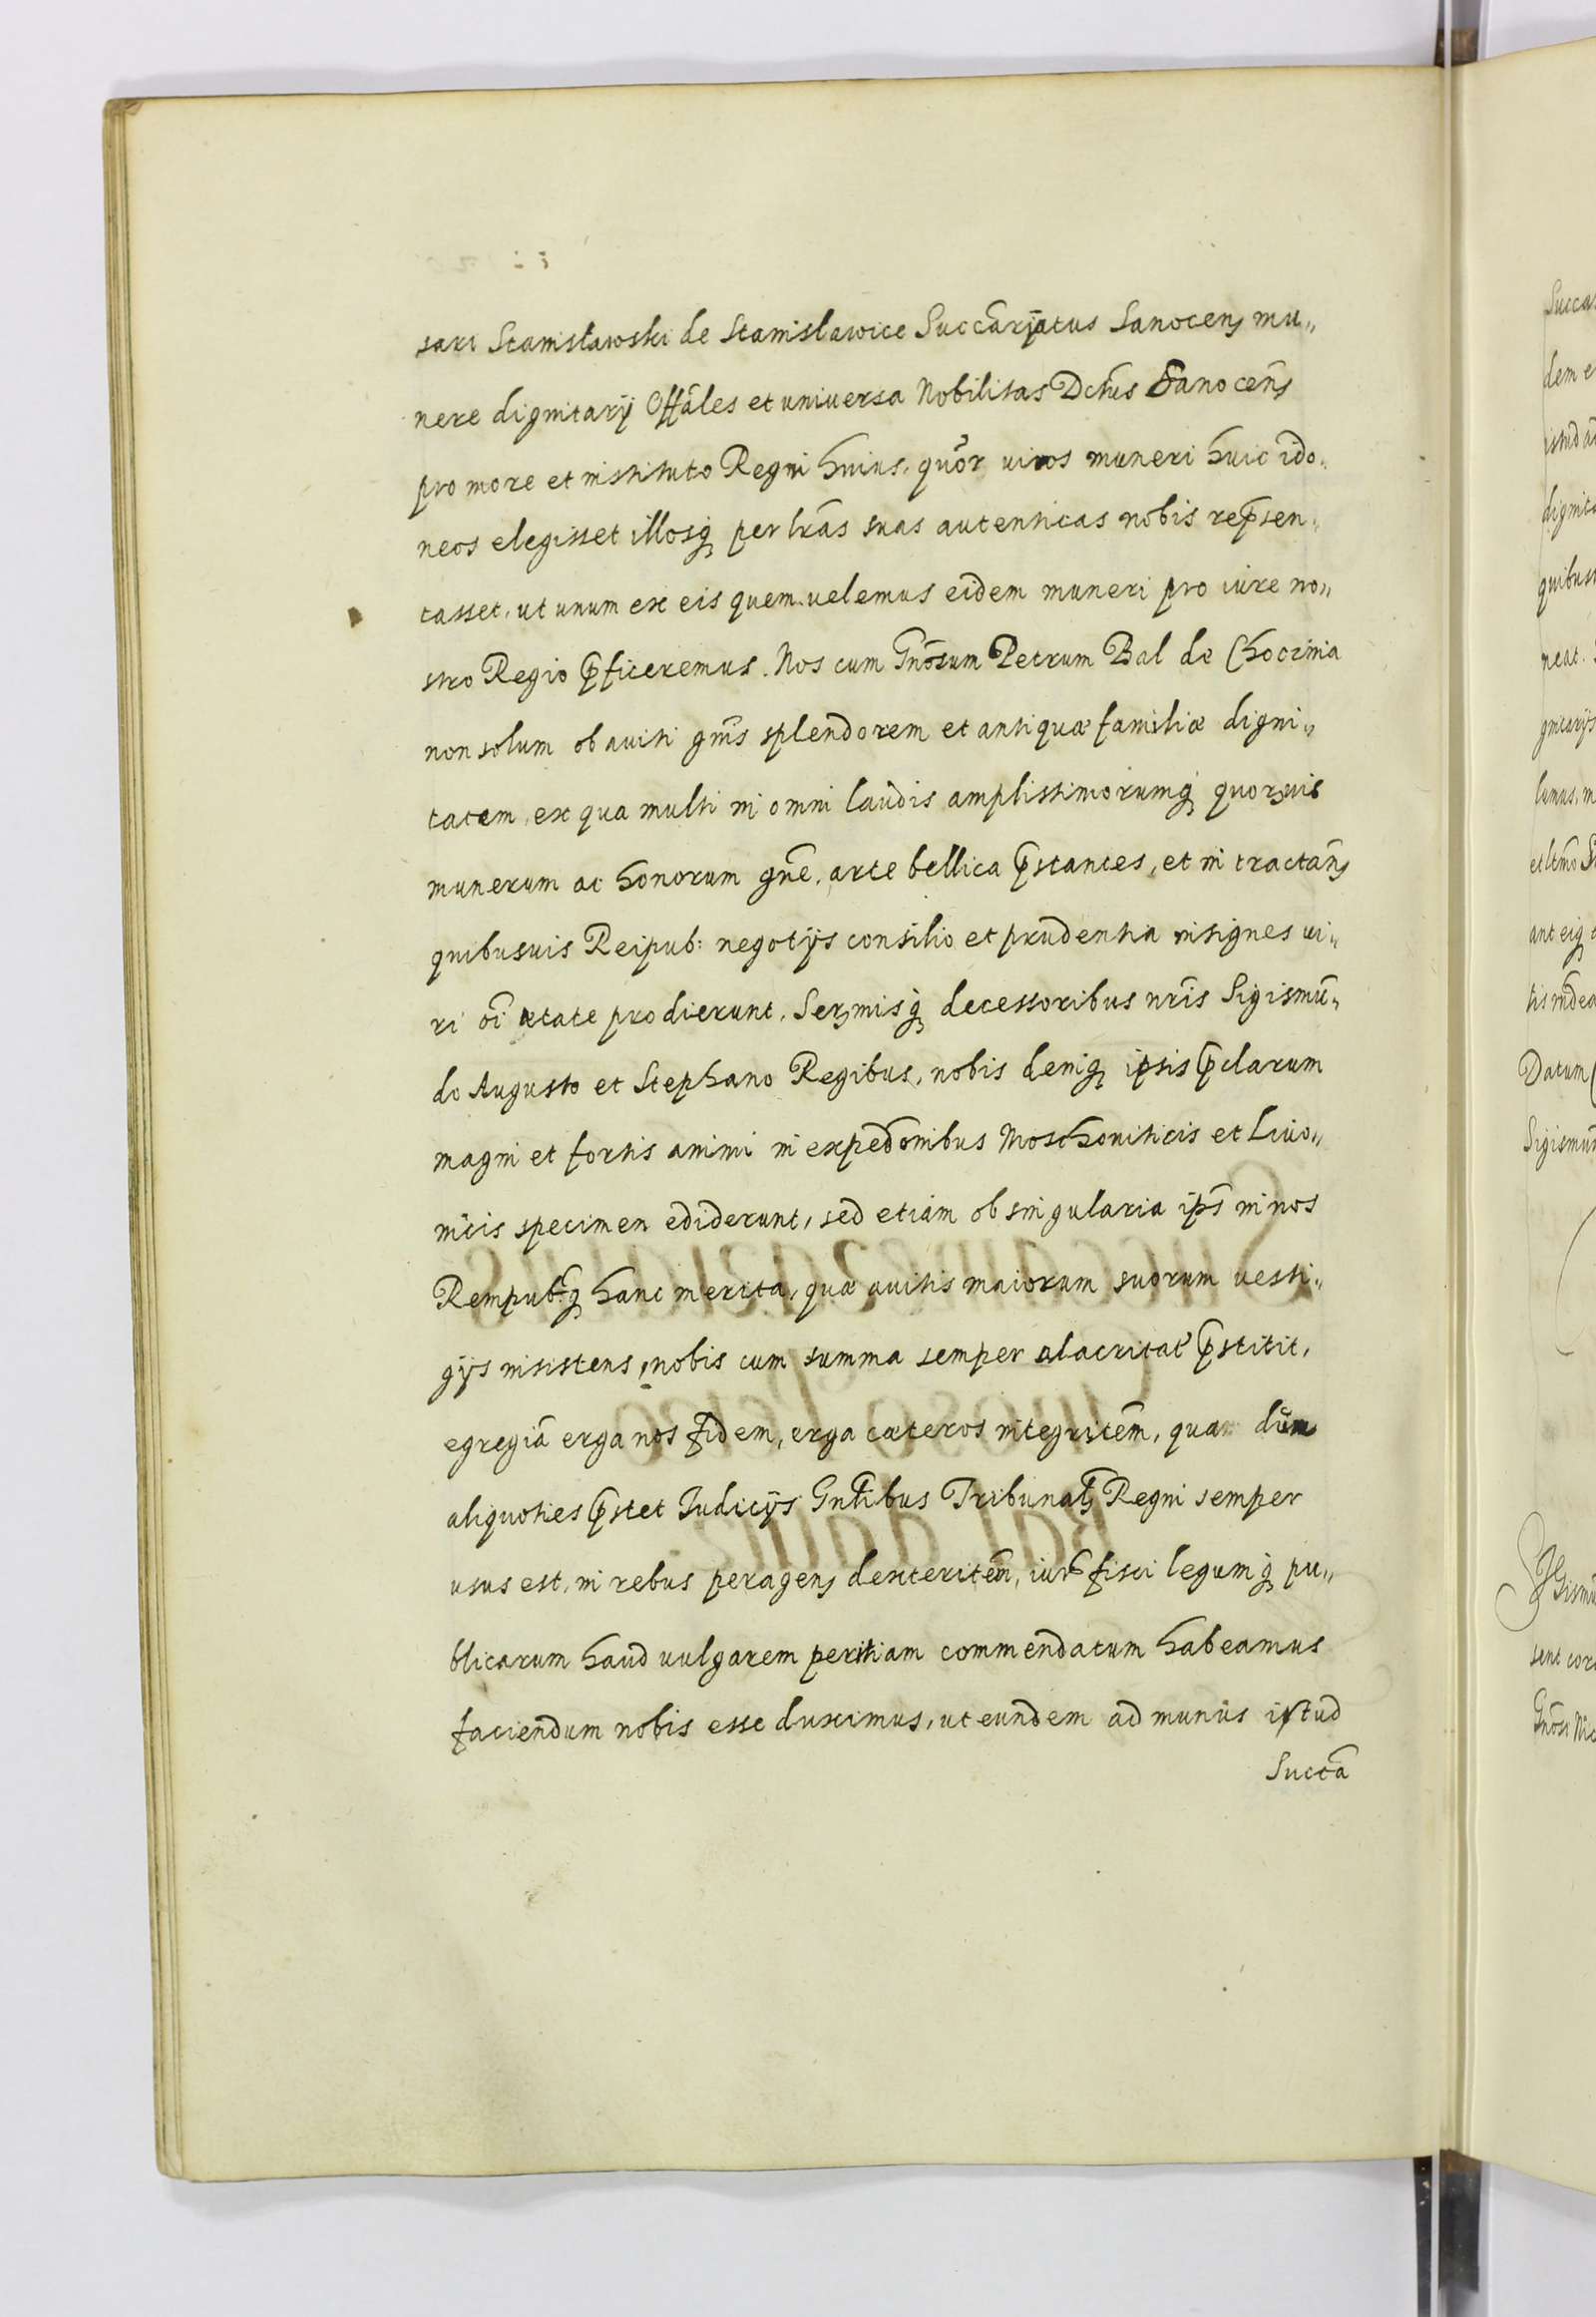 sari Stanisławski de Stanisławice Succãrijatus Sanocen̨ mu„
nere dignitarij Offãles et universa Nobilitas Dctũs Sanoceñs
pro more et instituto Regni huius, quõr viros muneri huic ido„
neos elegisset illosq̨ per lrãs suas autenticas nobis rep̃sen„
tasset, ut unum ex eis quem uelemus eidem muneri pro iure no„
stro Regio p̃ficeremus. Nos cum Gnõsum Petrum Bal de Chocznia
non solum ob auiti gnĩs splendorem et antiquæ familiæ digni„
tatem, ex qua multi in omni laudis amplissimorumq̨ quorumuis
munerum ac honorum gnẽ, arte bellica p̃stantes, et in tractañ
quibusuis Reipub: negotijs consilio et prudentia insignes ui„
ri oĩ ætate prodierunt, Sermisq̨ decessoribus nrĩs Sigismũ„
do Augusto et Stephano Regibus, nobis deniq̨ ipsis p̃clarum
magni et fortis animi in expedõnibus Moschouiticis et Liuo„
nicis specimen ediderunt, sed etiam ob singularia ip̃s in nos
Rempubq̨ hanc merita, quæ auitis maiorum suorum uesti„
gijs insistens, nobis cum summa semper alacritatẽ p̃stitit,
egregiã erga nos fidem, erga cæteros integritẽm, qua dum
aliquoties p̃stet Iudicijs Gnlĩbus Tribunal̃ Regni semper
usus est, in rebus peragen̨ dexteritẽm, iurĩs fisci legumq̨ pu„
blicarum haud uulgarem peritiam commendatum habeamus
faciendum nobis esse duximus, ut eundem ad munus istud
Succã